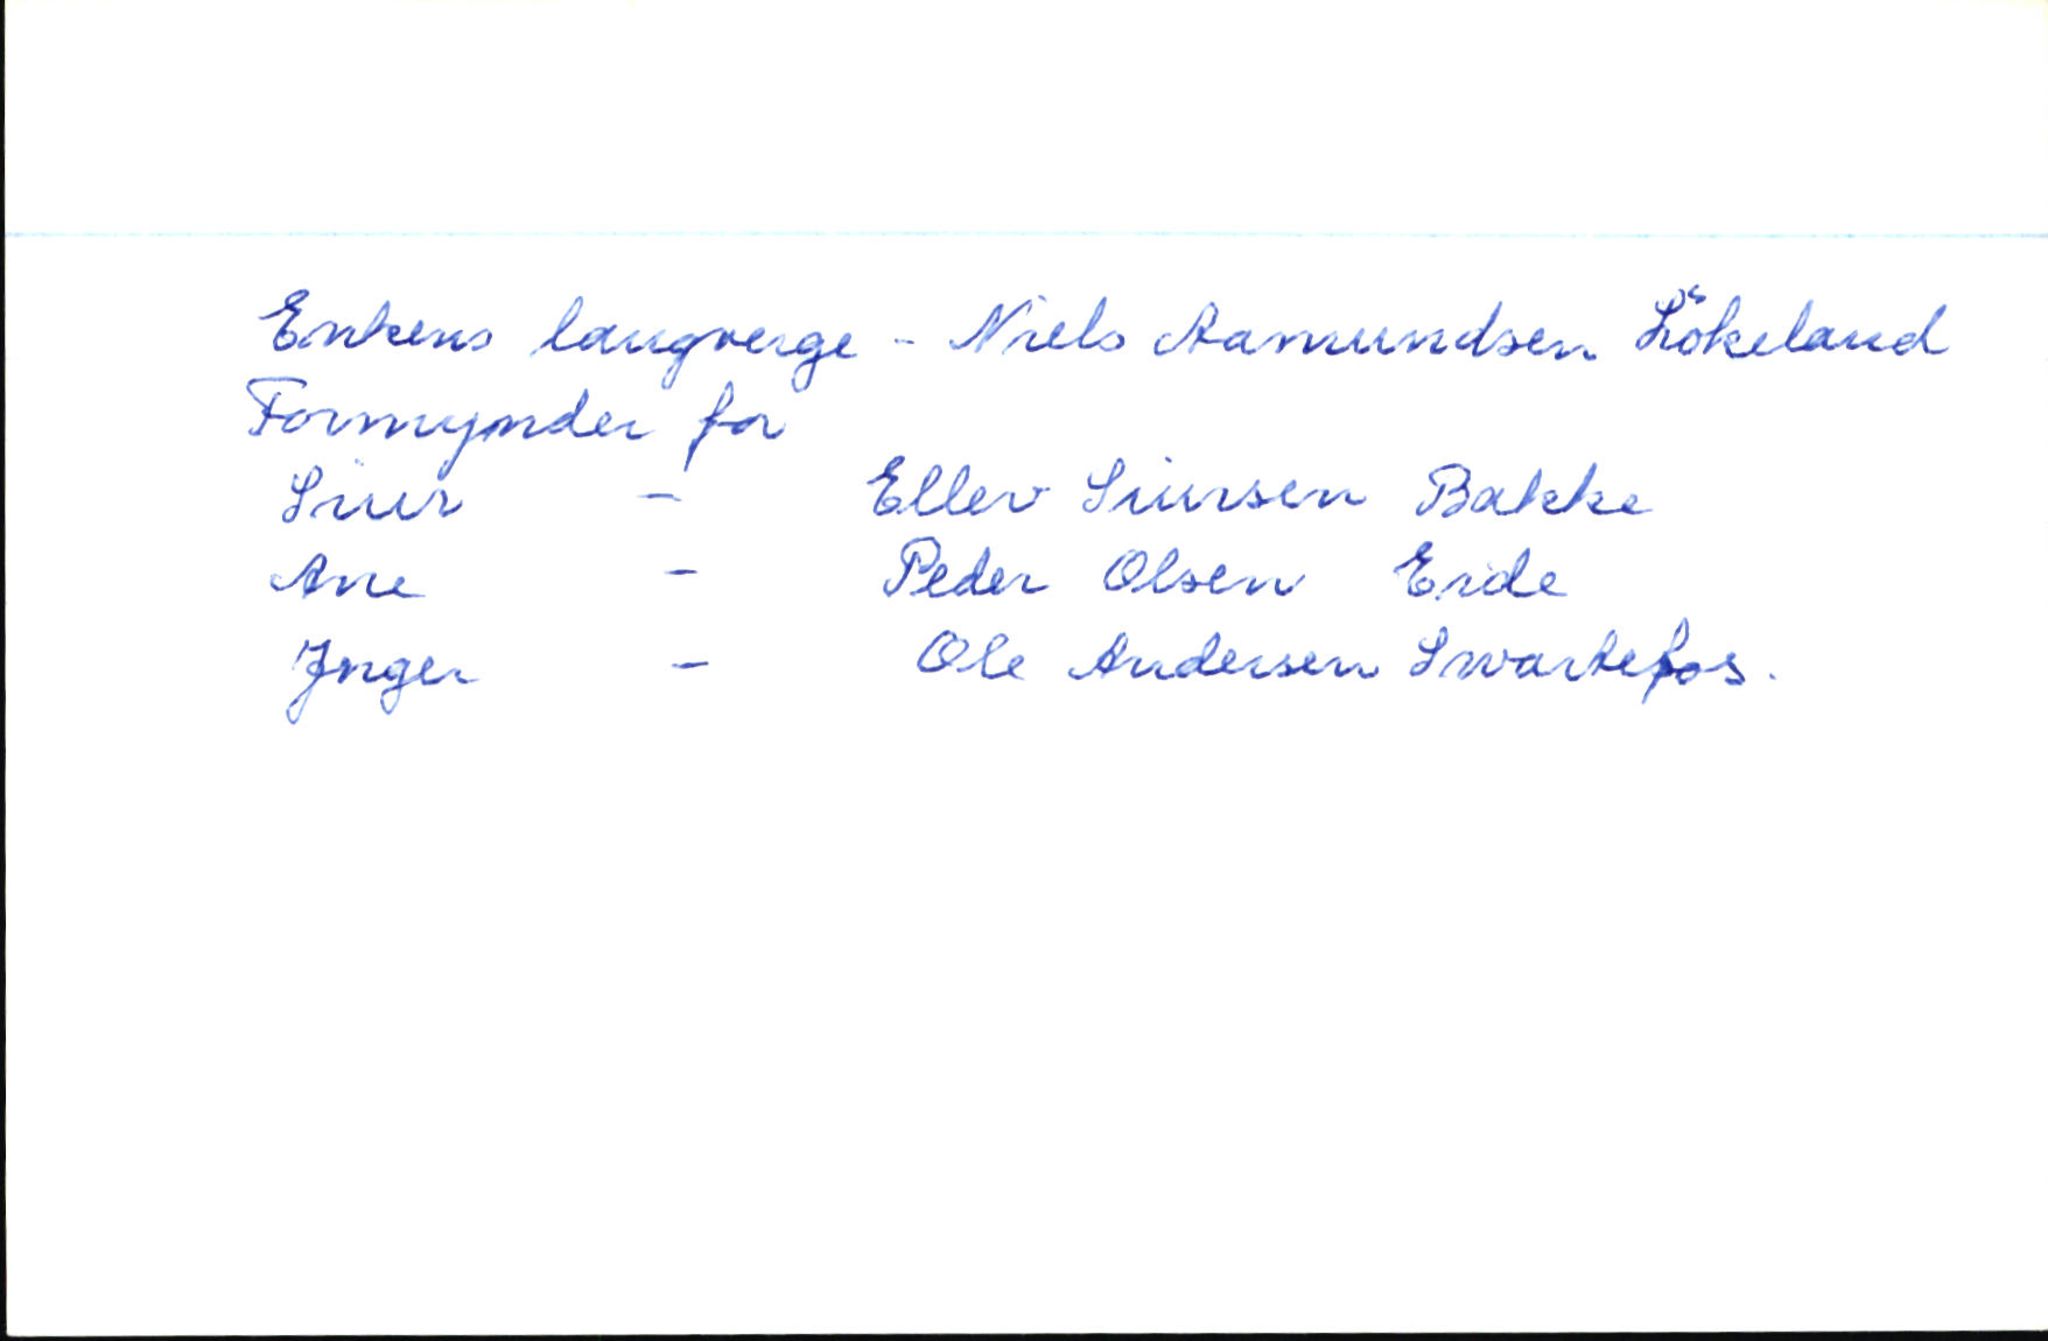 Enkens laugverge - Niels Aamundsen Lökeland
Formynder for
Siur - Ellev Siursen Bakke
Ane - Peder Olsen Eide
Jnger - Ole Andersen Swartefos.